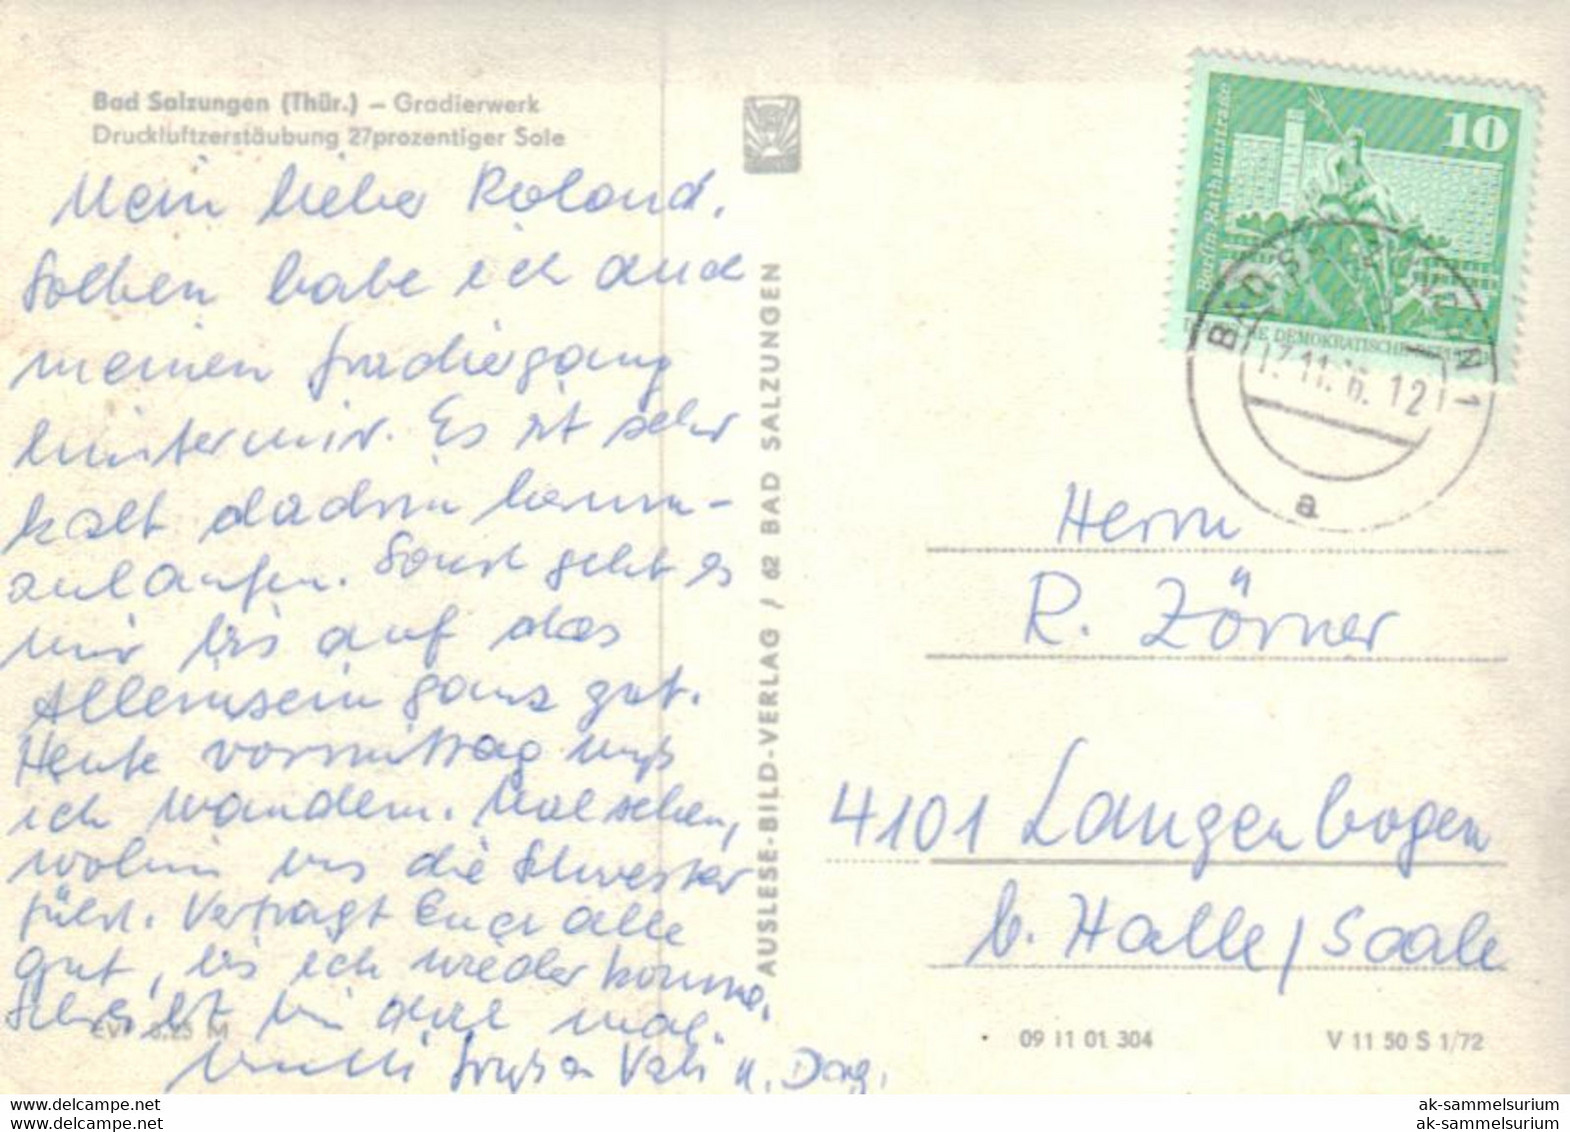 Bad Salzungen (Thür.) – Gradierwerk
Druckluftzerstäubung 27prozentiger Sole
Mein lieber Roland.
Soeben habe ich auch
meinen Gradiergang
hinter mir. Es ist sehr
kalt dadrin herum-
zulaufen. Sonst geht es
mir bis auf das
Alleinsein ganz gut.
Heute vormittag muß
ich wandern. Mal sehen,
wohin uns die Schwester
führt. Vertragt Euch alle
gut, bis ich wieder komme.
Schreibt mir doch mal.
EVP 0,25 M
Mutti Vati u. Dag.
AUSLESE-BILD-VERLAG / 62 BAD SALZUNGEN
10
Berlin, Rathausstraße
DEMOKRATISCHE
BAD SALZUNGEN 1
17.11.76. 12
a
Herrn
R. Zörner
4101 Langenbogen
b. Halle/Saale
09 11 01 304
V 11 50 S 1/72
www.delcampe.net
www.delcampe.net
ak-sammelsurium
ak-sammelsurium